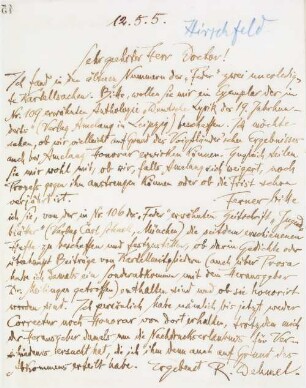 12.5.5.
Hirschfeld
Sehr geehrter Herr Doctor!
Ich fand in den älteren Nummern der "Feder" zwei unerledig-
te Kartellsachen. Bitte, wollen Sie mir ein Exemplar der in
Nr. 109 erwähnten Anthologie "Deutsche Lyrik des 19. Jahrhun-
derts" (Verlag Amelang in Leipzig) beschaffen. Ich möchte
sehen, ob wir vielleicht auf Grund des Voigtländer'schen Ergebnisses
auch bei Amelang Honorar erwirken können. Zugleich teilen
Sie mir wohl mit, ob wir, falls Amelang sich weigert, noch
Prozeß gegen ihn anstrengen können oder ob die Frist schon
verjährt ist.
Ferner bitte
ich Sie, von der in Nr. 106 der Feder erwähnten Zeitschrift
(Verlag Carl, München) die seitdem erschienenen
Hefte zu beschaffen und festzustellen, ob darin Gedichte oder
überhaupt Beiträge von Kartellmitgliedern (auch über Prosa
habe ich damals ein Sonderabkommen mit dem Herausgeber
Dr. getroffen) enthalten sind und ob sie honorirt
worden sind. Ich persönlich habe nämlich bis jetzt weder
Correctur noch Honorar von dort erhalten, trotzdem mich
der Herausgeber damals um die Nachdruckserlaubnis für Ver-
schiedenes ersucht hat, die ich ihm denn auch auf Grund des
Abkommens erteilt habe.
Ergebenst R. Dehmel.